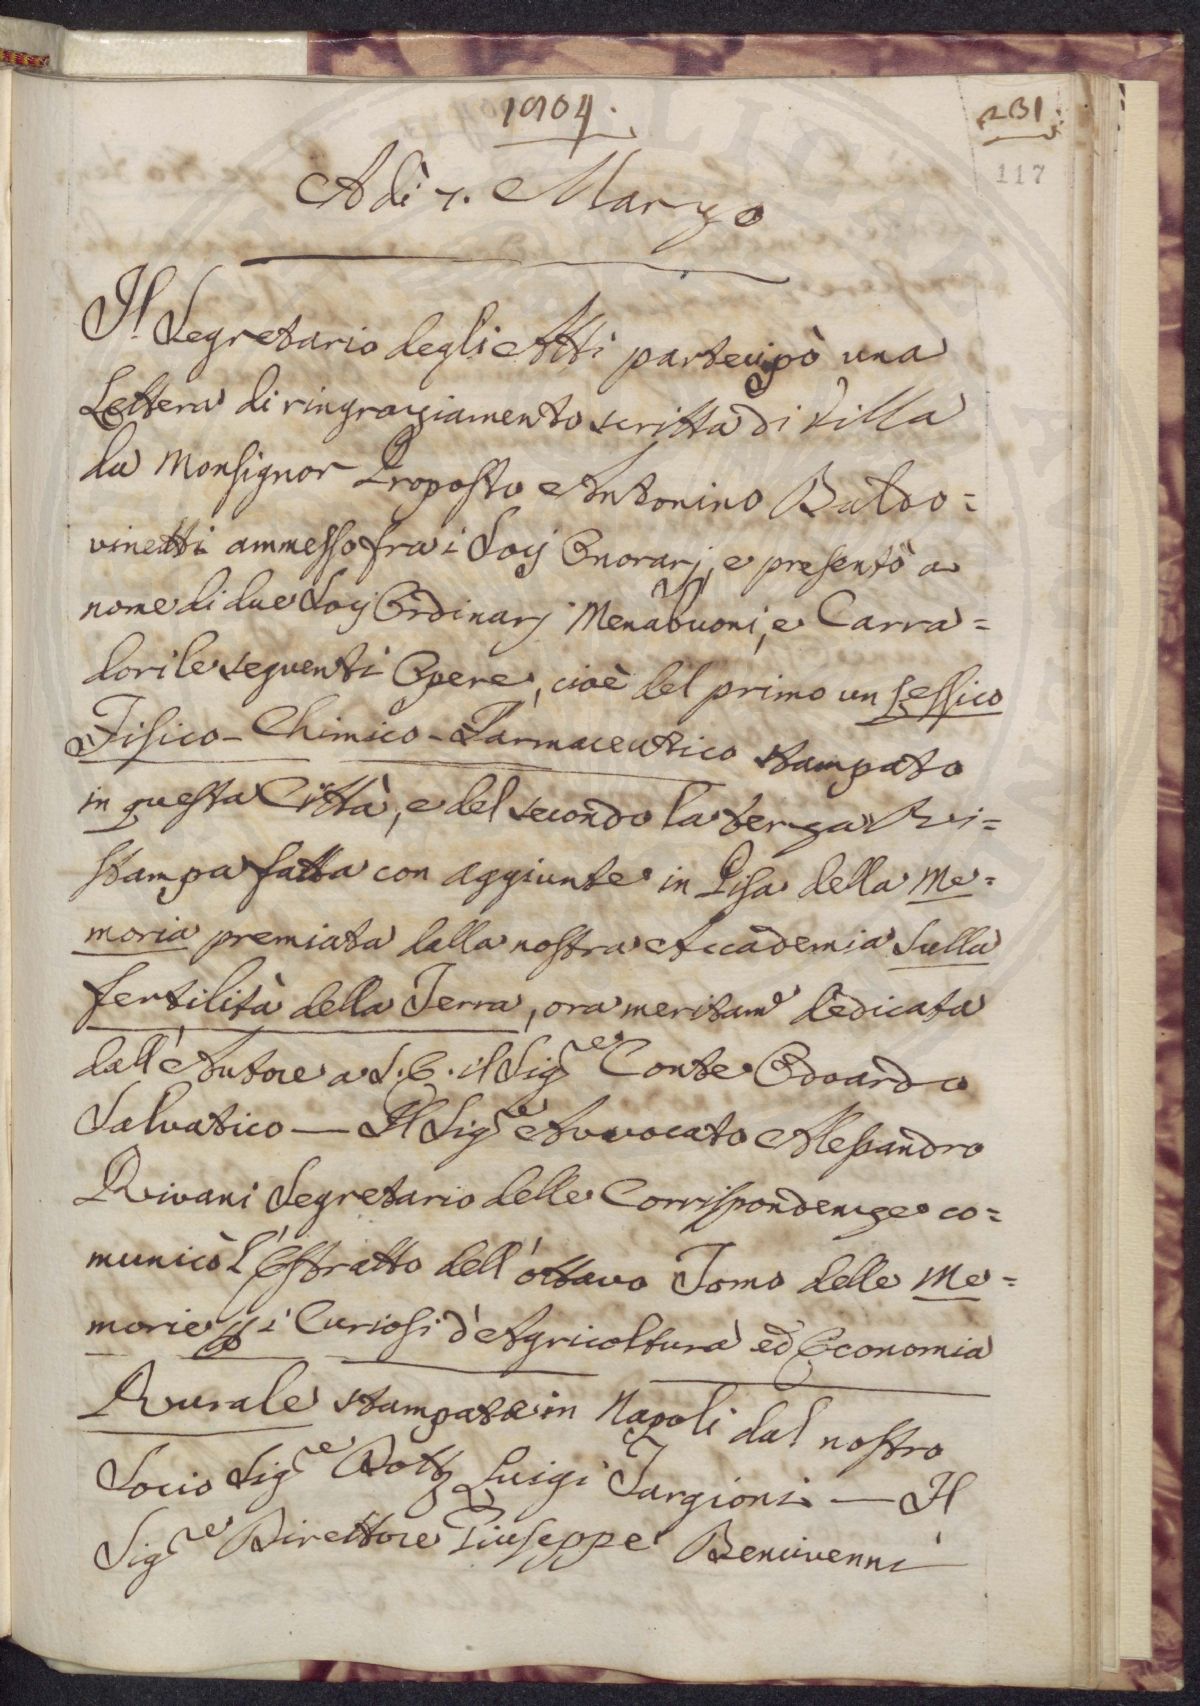 1804.
231
117
Adì 7. Marzo
Il Segretario degli Atti partecipò una
Lettera di ringraziamento scritta di Villa
da Monsignor Proposto Antonino Baldo=
vinetti ammesso fra i Socj Onorarj, e presentò a
nome di due Socj Ordinarj Menabuoni, e Carra=
dori le seguenti Opere, cioè del primo un Lessico
Fisico-Chimico-Farmaceutico stampato
in questa Città, e del secondo la terza Ri=
stampa fatta con aggiunte in Pisa della Me=
moria premiata dalla nostra Accademia Sulla
fertilità della Terra, ora meritamᵉ dedicata
dall'Autore a S. E. il Sigʳᵉ Conte Odoardo
Salvatico — Il Sigʳᵉ Avvocato Alessandro
Rivani Segretario delle Corrispondenze co=
municò l'Estratto dell'ottavo Tomo delle Me=
morie p i Curiosi d'Agricoltura ed Economia
Rurale stampate in Napoli dal nostro
Socio Sigʳᵉ Dott Luigi Targioni — Il
Sigʳᵉ Direttore Giuseppe Bencivenni